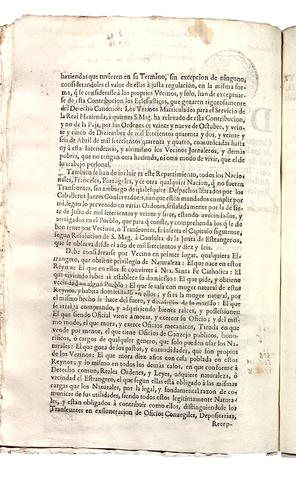 haziendas que tuvieren en su Termino, sin excepcion de ninguno,
considerandoles el valor de ellas à justa regulacion, en la misma for-
ma, q̃ se considerasse à los proprios Vezinos, y solo, han de exceptuar-
se de esta Contribucion los Eclesiasticos, que gozaren rigorosamente
del Derecho Canonico: Los Vezinos Matriculados para el Servicio de
la Real Hazienda, à quienes S. Mag. ha relevado de esta Contribucion,
y no de la Paja, por sus Ordenes de veinte y nueve de Octubre, y vein-
te y cinco de Diziembre de mil setecientos quarenta y dos, y veinte y
seis de Abril de mil setecientos quarenta y quatro, comunicadas hasta
oy à esta Intendencia, y assimismo los Vezinos Jornaleros, y demàs
pobres, que no tengan otra hazienda, ni otro modo de vivir, que el de
su trabajo personal.
Tambien se han de incluir en este Repartimiento, todos los Nacio-
nales, Franceses, Portugueses, y de otra qualquier Nacion, q̃ no fueren
Transeuntes, sin embargo de qualesquier Despachos librados por los
Cavalleros Juezes Conservadores, aunque estèn mandados cumplir por
mì, segun lo prevenido en varias Ordenes, señaladamente por la de sie-
te de Julio de mil setecientos veinte y siete, estando avecindados, y
arraygados en el Pueblo, que para q̃ conste, y comprehenda los q̃ se de-
ben tener por Vecinos, ò Transeuntes, se inserta el Capitulo siguiente,
segun Resolucion de S. Mag. à Consulta de la Junta de Estrangeros,
que se observa desde el año de mil setecientos y diez y seis.
Debe considerarse por Vecino en primer lugar, qualquiera Es-
trangero, que obtenga privilegio de Naturaleza: El que nace en estos
Reynos: El que en ellos se convierte à Nra. Santa Fè Catholica: El
que viviendo sobre sì establece su domicilio: El que pide, y obtiene
vecindad en algun Pueblo: El que se casa con muger natural de estos
Reynos, y habita domiciliado en ellos; y si es la muger natural, por
el mismo hecho se hace del fuero, y domicilio de su marido: El que
se arraiga comprando, y adquiriendo bienes raices, y possessiones:
El que siendo Oficial viene à morar, y exercer su Oficio; y del mis-
mo modo, el que mora, y exerce Oficios mecanicos, Tienda en que
vende por menor, el que tiene Oficios de Consejo publicos, hono-
rificos, ò cargos de qualquier genero, que solo pueden usar los Na-
turales: El que goza de los pastos, y comodidades, que son proprios
de los Vezinos: El que mora diez años con casa poblada en estos
Reynos; y lo mismo en todos los demàs casos, en que conforme à
Derecho comun, Reales Ordenes, y Leyes, adquiere naturaleza, ò
vecindad el Estrangero, el que segun ellas està obligado à las mismas
cargas que los Naturales, por la legal, y fundamental razon de co-
municar de sus utilidades, siendo todos estos legitimamente Natura-
les, y estàn obligados à contribuir como ellos, distinguiendose los
Transeuntes en exoneracion de Oficios Concegiles, Depositarias,
Recep-